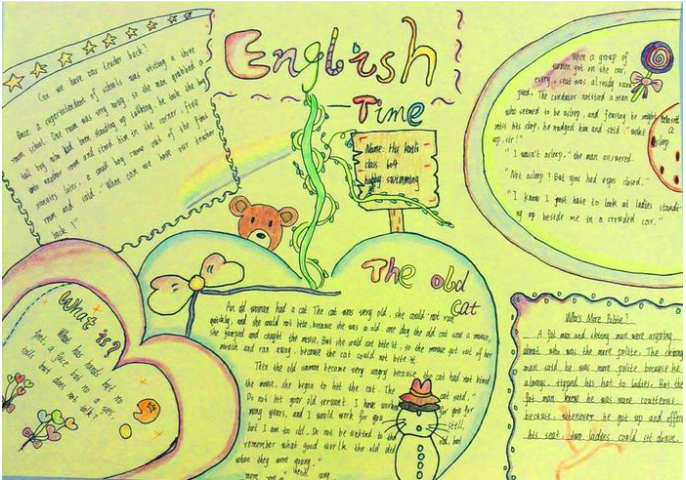 English
Time
Can we have our teacher back?
Once a superintendent of schools was visiting a three
room school. One room was very noisy, so the man grabbed a
tall boy who had been standing up talking, he took the boy
into another room and stood him in the corner. five
minutes later, a small boy came out of the first
room and said: "When can we have our teacher
back?"
Name: Hu
class: 604
happy: swimming
When a group of
women got on the car,
every seat was already
The conductor noticed a man
who seemed to be asleep, and fearing he might
miss his stop, he nudged him and said: "wake
up, sir!"
asleep
"I wasn't asleep." the man answered.
"Not asleep? But you had eyes closed."
"I know I just hate to look at ladies stand-
ng up beside me in a crowded car."
The old
cat
An old woman had a cat. The cat was very old, she could not run
quickly, and she could not bite, because she was so old. one day the old cat saw a mouse,
she jumped and caught the mouse. But she could not bite it. so the mouse got out of her
mouth and ran away, because the cat could not bite it.
Then the old woman became very angry because the cat had not
the mouse. she began to hit the cat. The cat said, "
Do not hit your old servant. I have worked for you for
many years, and I would work for you still,
but I am to old. Do not be unkind to the old, but
remember what good work the old did
when they were young."
What is?
What has hands but no
feet, a face but no eyes,
talk.
Who's More Polite?
A fat man and skinny man were arguing
about who was the more polite. The skinny
man said he was more polite because he
always tipped his hat to ladies. But the
fat man knew he was more courteous
because, whenever he got up and offere
his seat, two ladies could sit down.